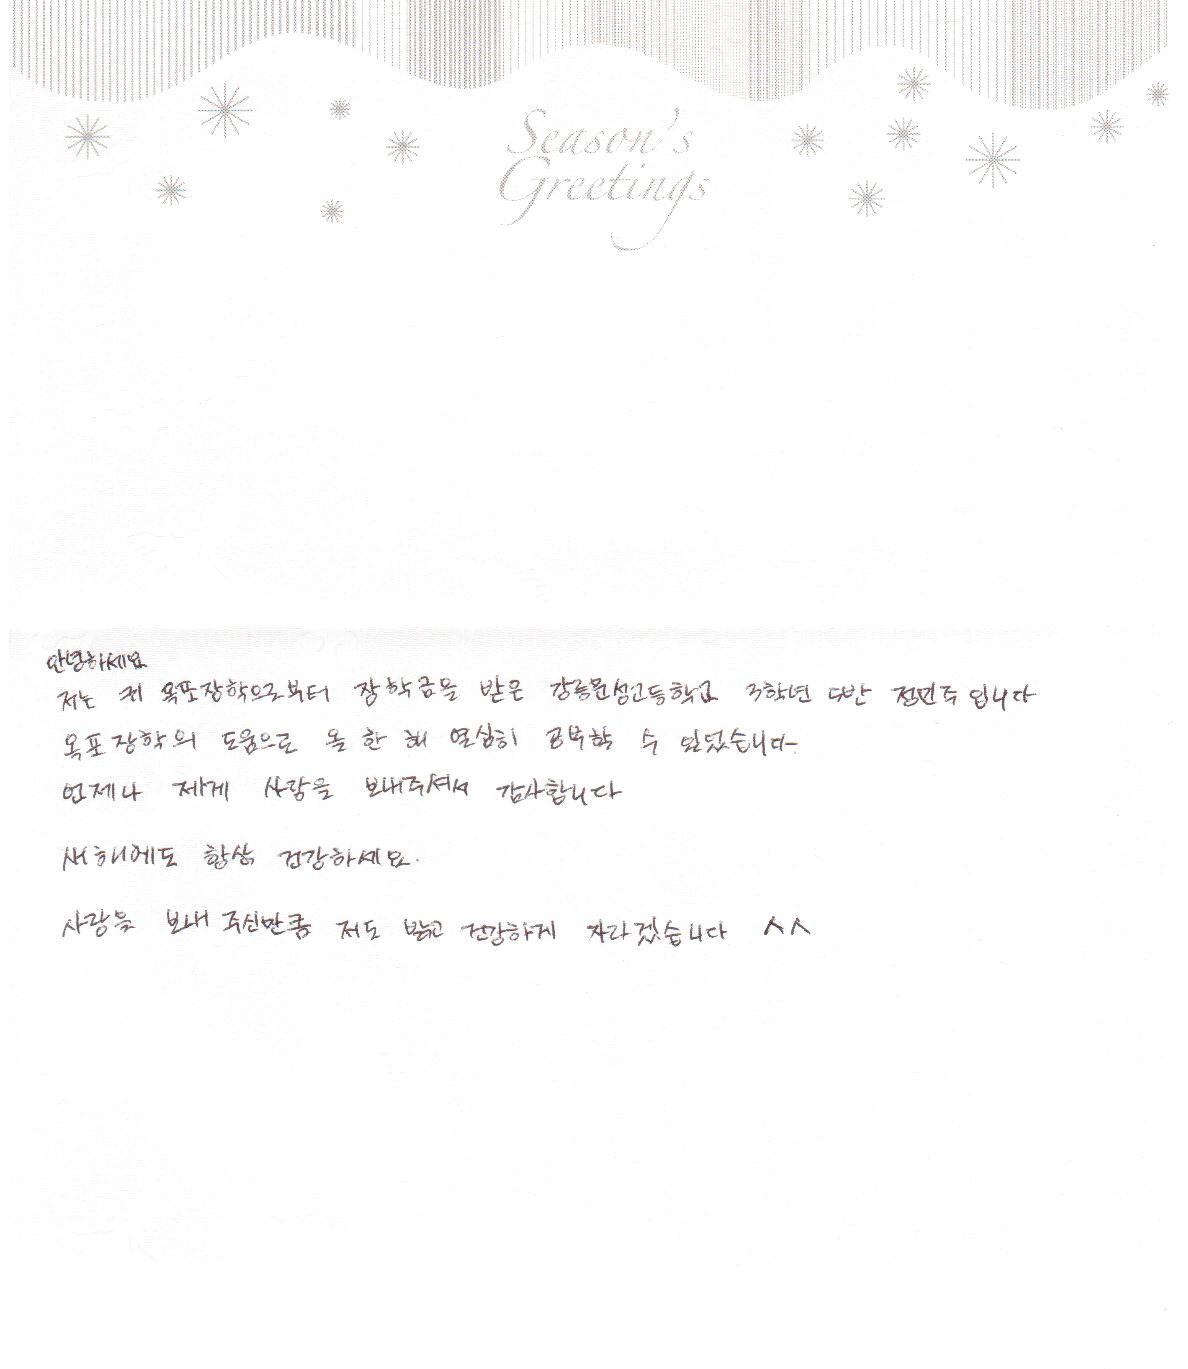 Season's
Greetings
안녕하세요
저는 옥포장학으로부터 장학금을 받은 강릉문성고등학교 3학년 다반 전민주 입니다
옥포장학의 도움으로 올 한 해 열심히 공부할 수 있었습니다.
언제나 제게 사랑을 보내주셔서 감사합니다
새해에도 항상 건강하세요.
사랑을 보내 주신만큼 저도 밝고 건강하게 자라겠습니다 ^^